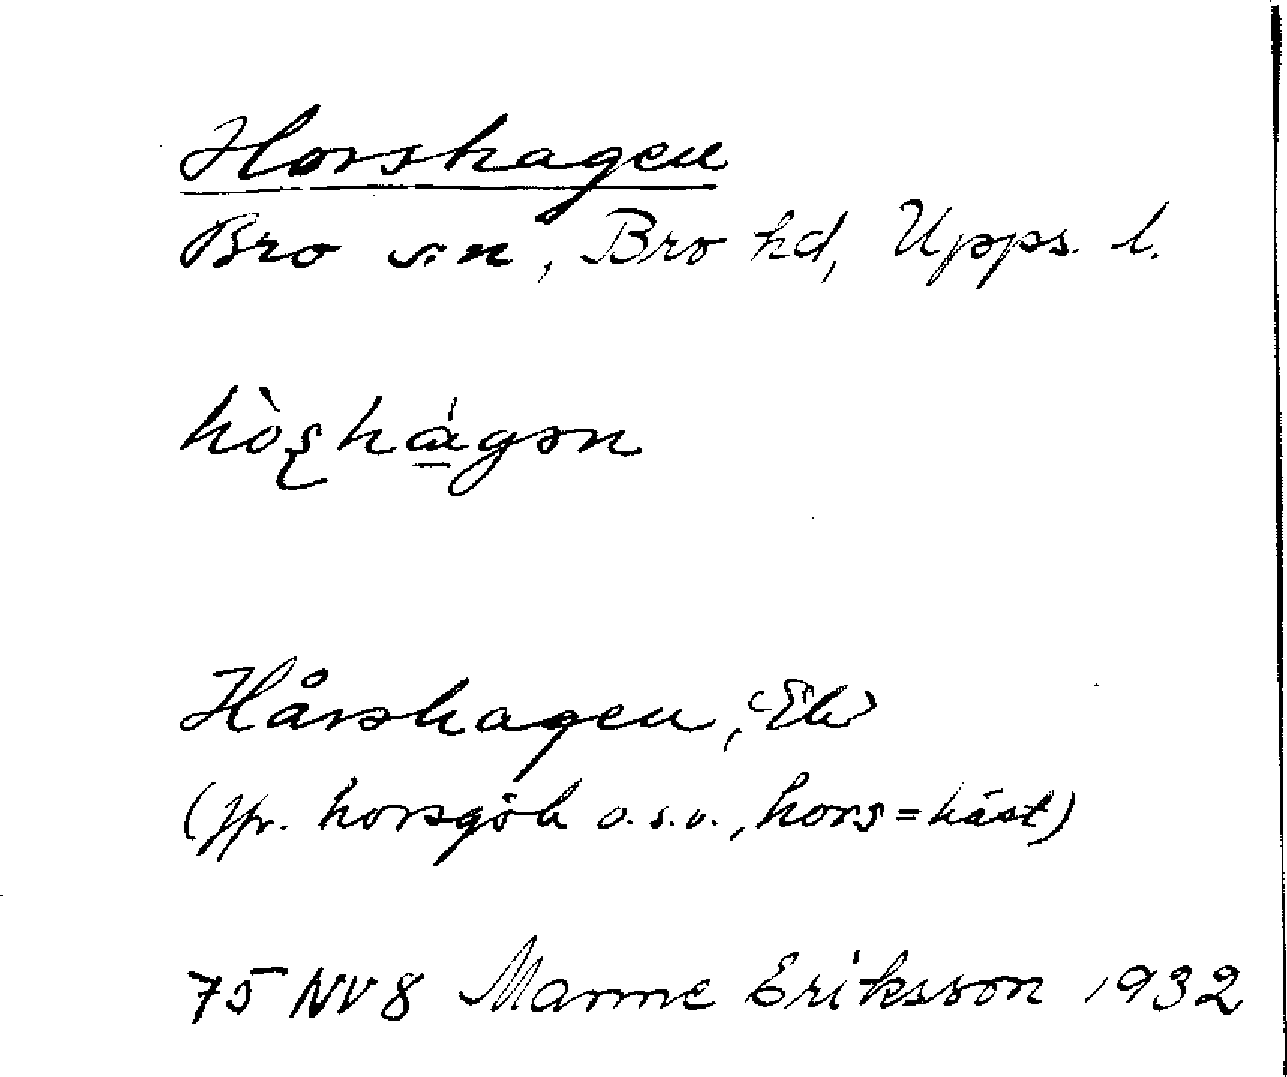 Horshagen
Bro sn, Bro hd, Upps. l.
Hårshagen, Ek
(jfr. horsgök o.s.v., hors=häst)
75 NV8 Manne Eriksson 1932